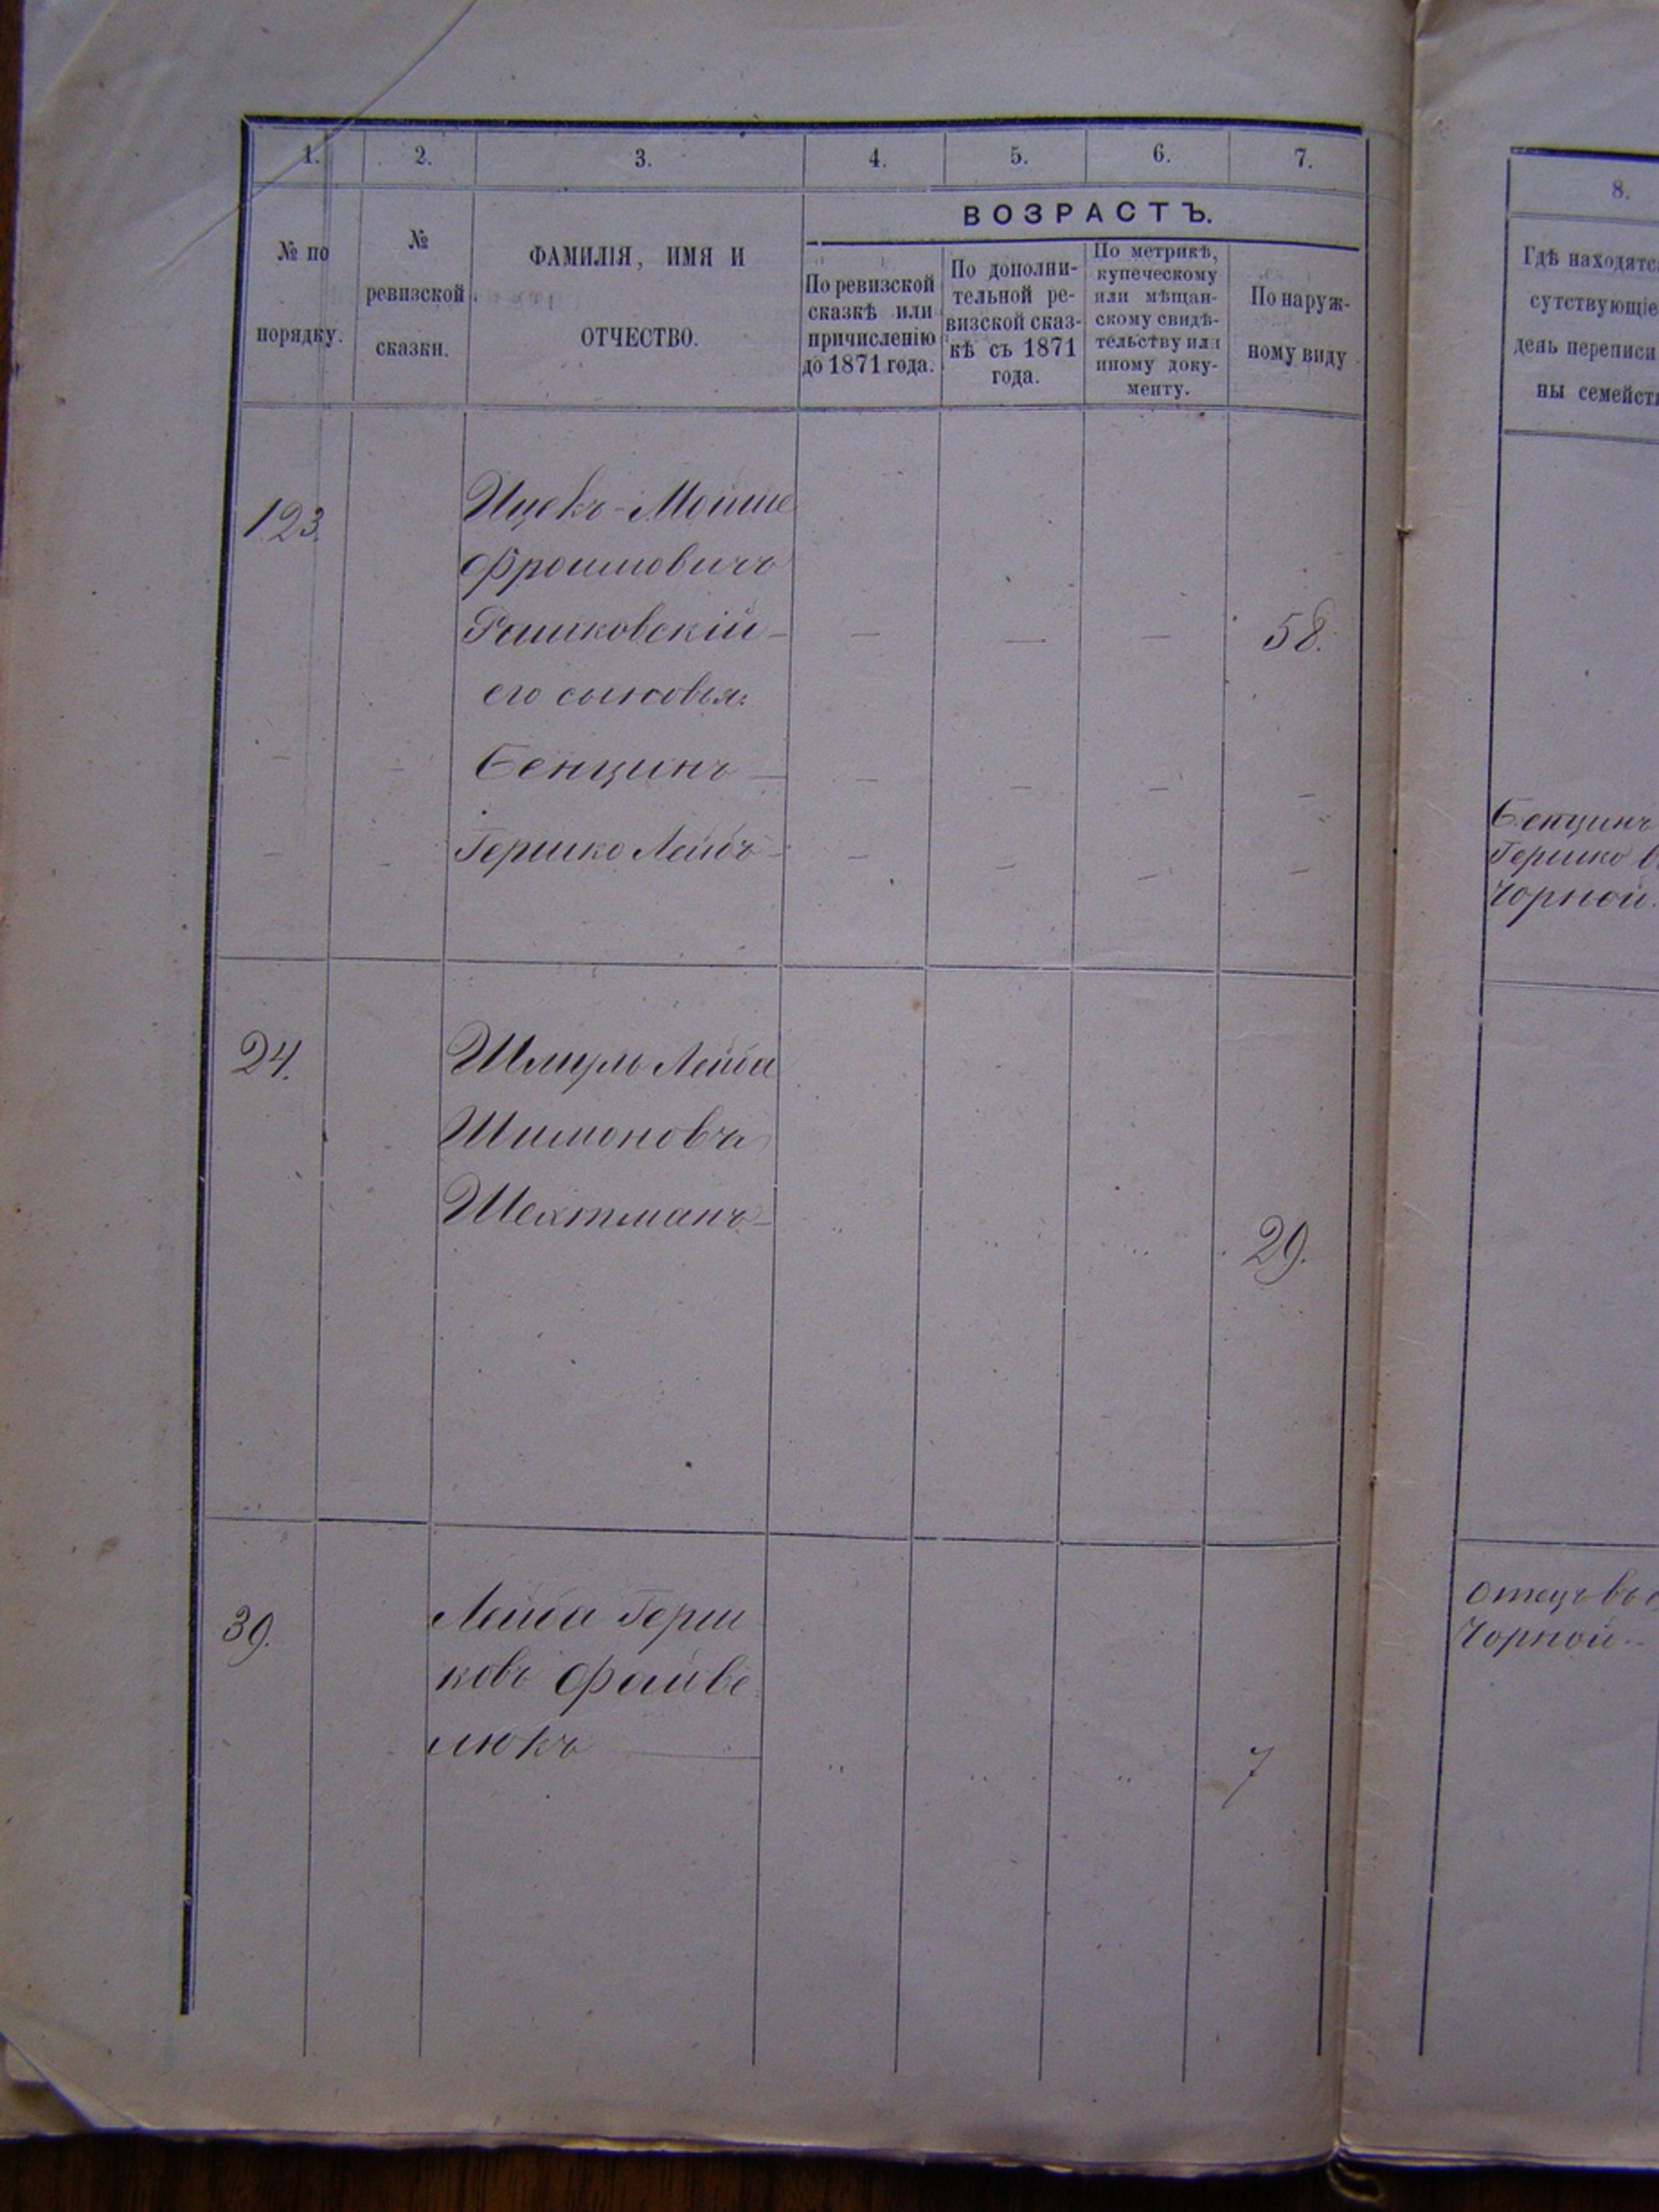 1. 2. 3. 4. 5. 6. 7.
№ по
порядку.
№
ревизской
сказки.
ФАМИЛІЯ, ИМЯ И
ОТЧЕСТВО.
ВОЗРАСТЪ.
По ревизской
сказкѣ или
причисленію
до 1871 года.
По дополни-
тельной ре-
визской сказ-
кѣ съ 1871
года.
По метрикѣ,
купеческому
или мѣщан-
скому свидѣ-
тельству или
иному доку-
менту.
По наруж-
ному виду
123. Ицекъ-Мойше
Фроимовичъ
Рашковскій — — — — 58.
его сыновья:
— — Бенцинъ — — — — —
— — Гершко Лейбъ — — — — —
24. Шмуль Лейба
Шимоновъ
Шехтманъ — „ „ „ 29.
39. Лейба Герш
ковъ Файве
люкъ — „ „ „ 7
8.
Гдѣ находятс
сутствующіе
день переписи
ны семейств
Бенцинъ
Гершко в
Чорной.
Отецъ въ
Чорной.